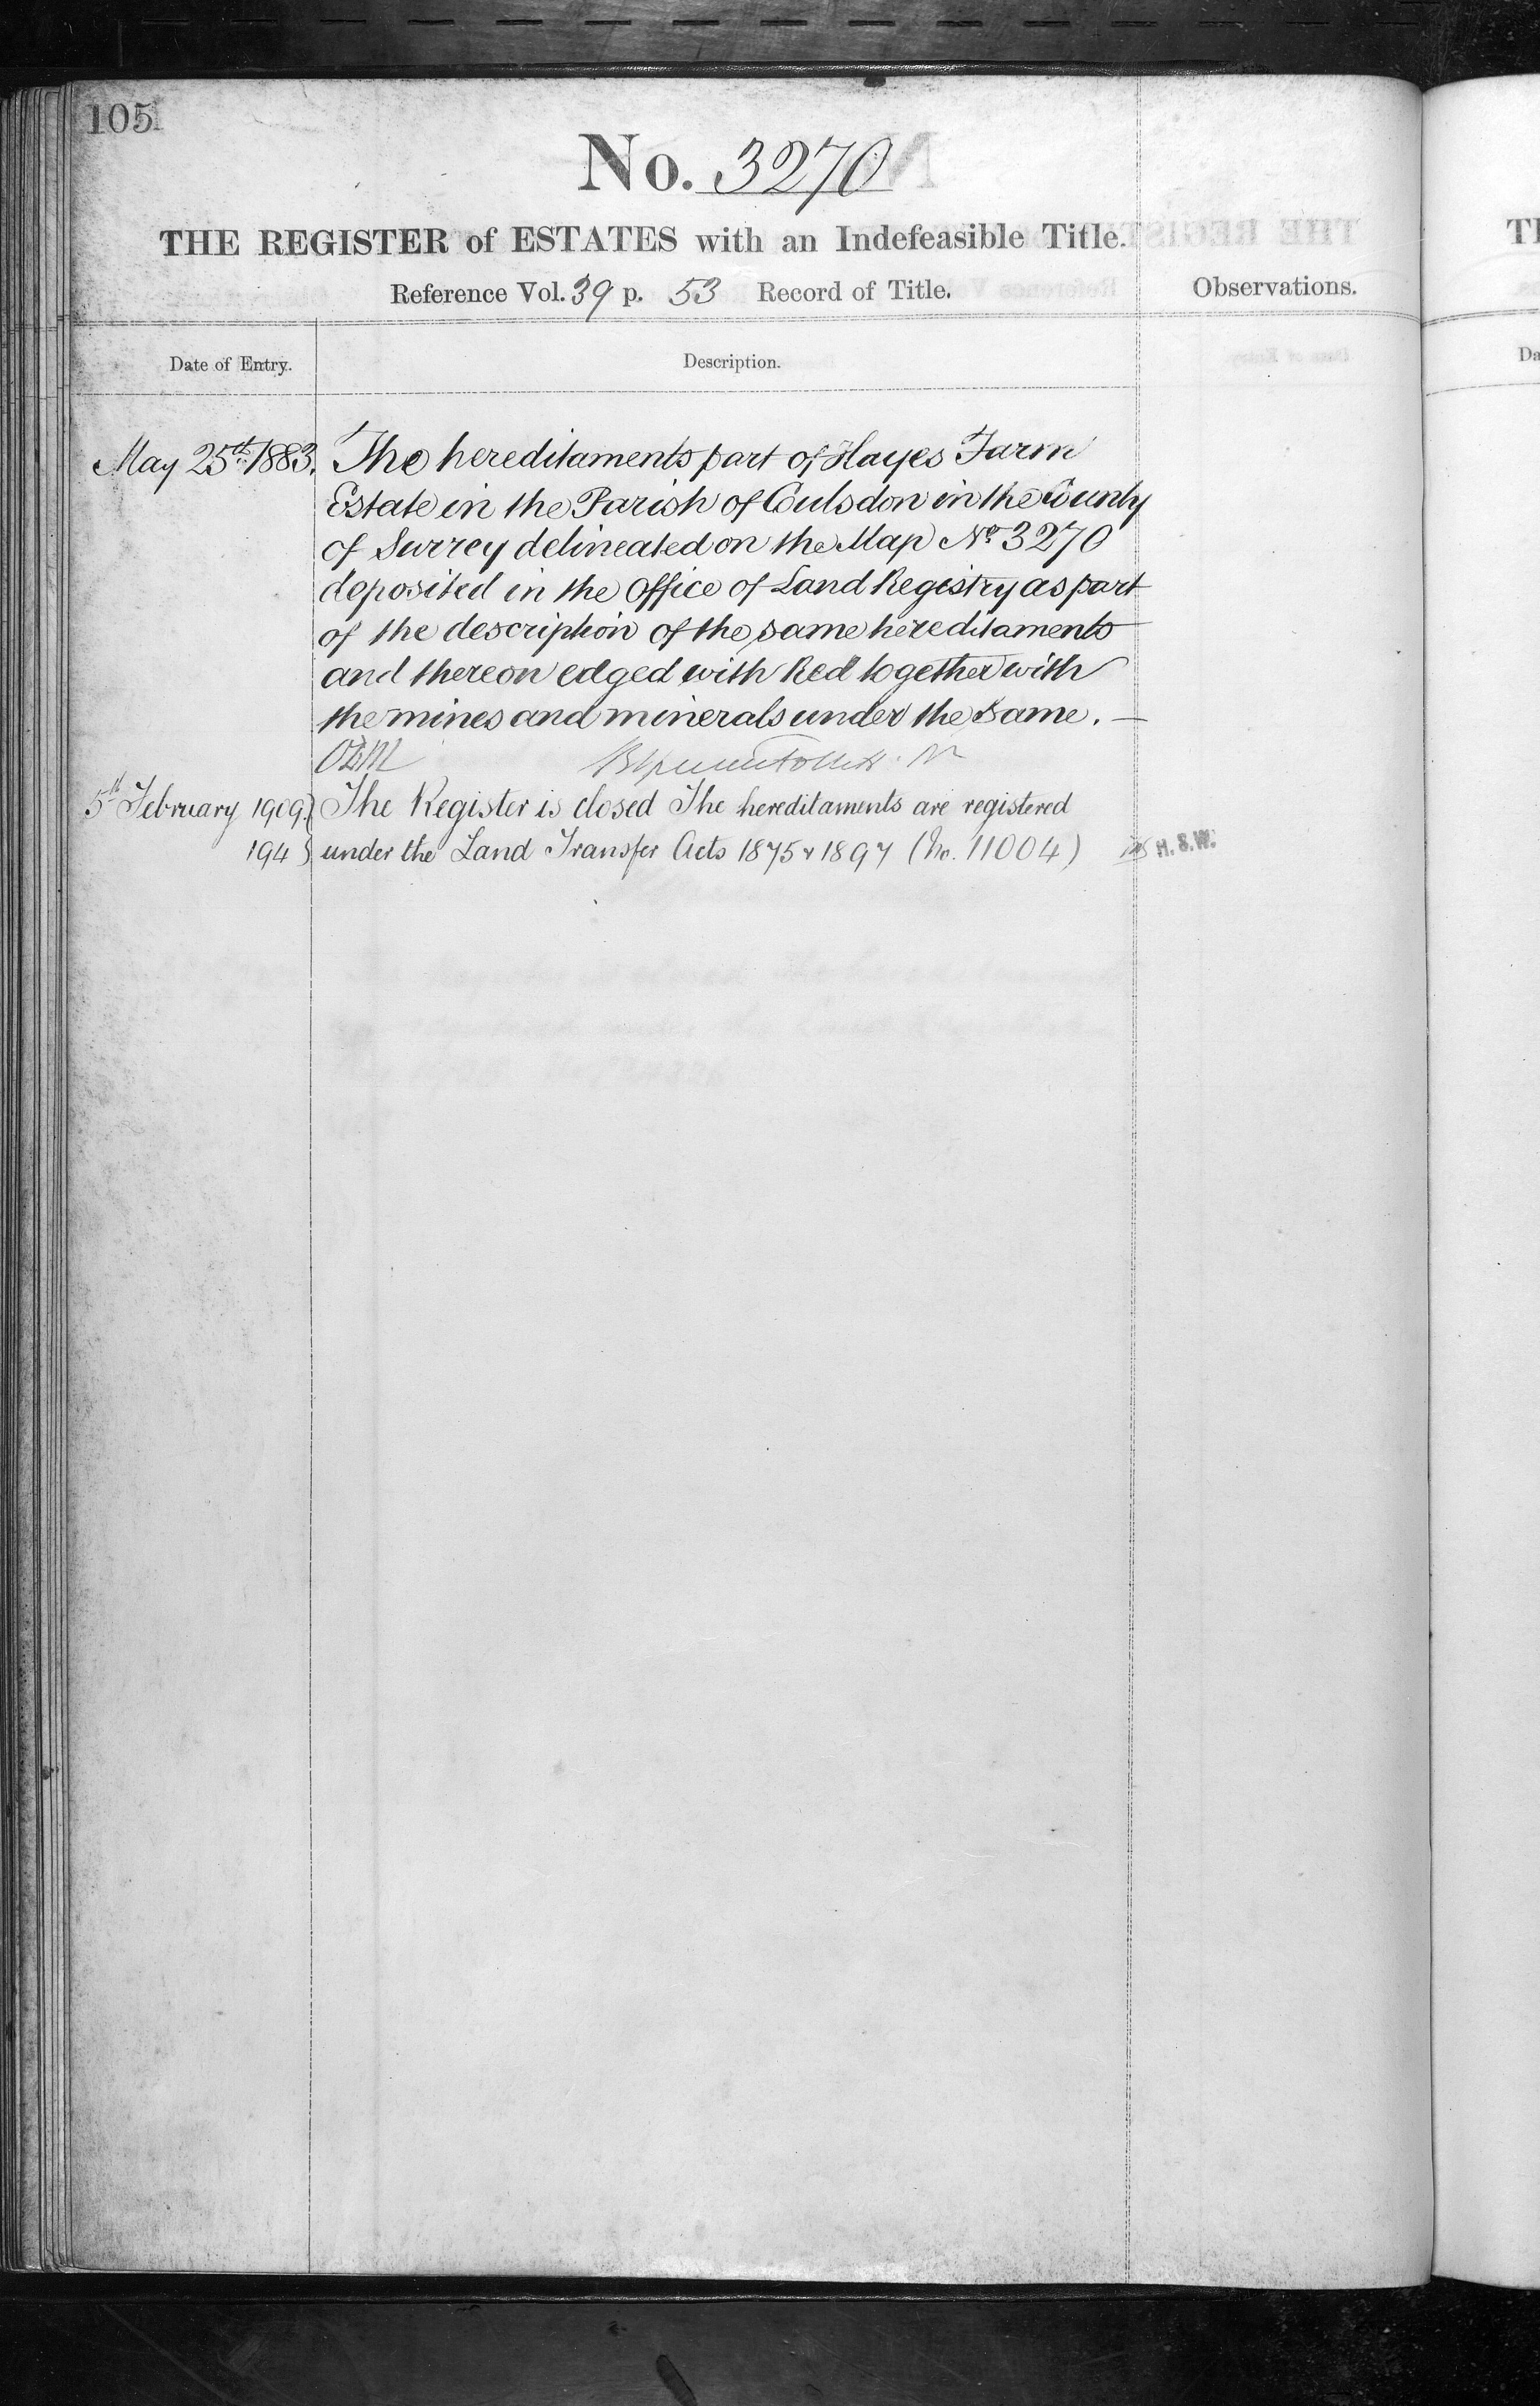 105
No. 3270
THE REGISTER of ESTATES with an Indefeasible Title.
Reference Vol. 39 p. 53 Record of Title.
Observations.
Date of Entry.
Description.
May 25th 1883. The hereditaments part of Hayes Farm
Estate in the Parish of Coulsdon in the County
of Surrey delineated on the Map No. 3270
deposited in the Office of Land Registry as part
of the description of the same hereditaments
and thereon edged with Red together with
the mines and minerals under the same. —
5th February 1909. } The Register is closed The hereditaments are registered
194 } under the Land Transfer Acts 1875 & 1897 (No. 11004) H.S.W.